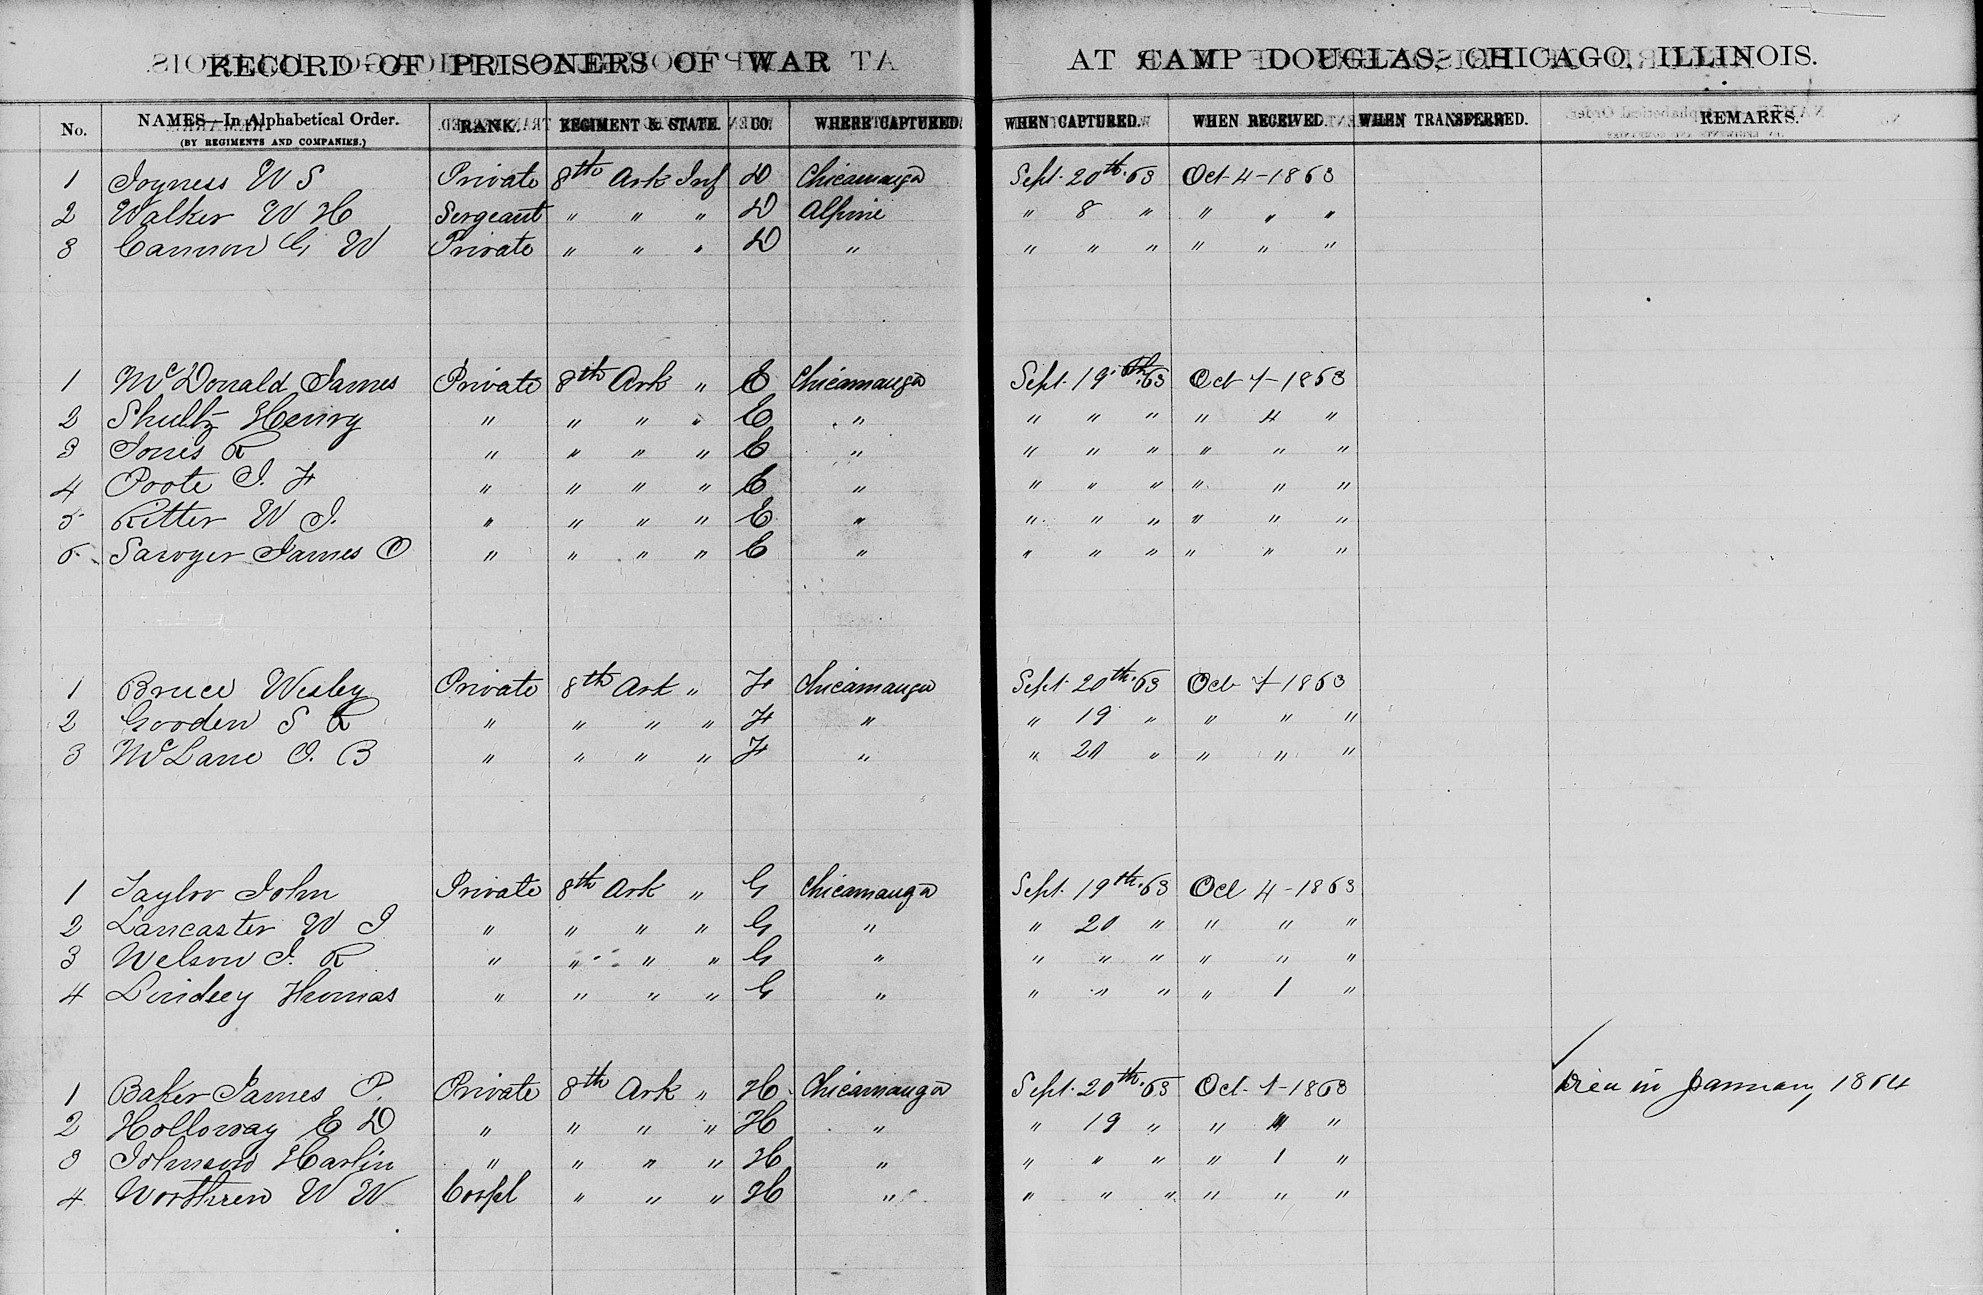 RECORD OF PRISONERS OF WAR AT CAMP DOUGLAS, CHICAGO, ILLINOIS.
No. NAMES—In Alphabetical Order. RANK. REGIMENT & STATE. CO. WHERE CAPTURED. WHEN CAPTURED. WHEN RECEIVED. WHEN TRANSFERRED. REMARKS.
(BY REGIMENTS AND COMPANIES.)
1 Joyness W S Private 8th Ark Inf D Chicamauga Sept. 20th. 63 Oct 4-1863
2 Walker W H Sergeant " " " D Alpine " 8 " " " "
3 Cannon G W Private " " " D " " " " " " "
1 McDonald James Private 8th Ark " E Chicamauga Sept. 19th. 63 Oct 4-1863
2 Shultz Henry " " " " E " " " " " 4 "
3 Jones R " " " " E " " " " " " "
4 Poote I. F " " " " E " " " " " " "
5 Ritter W J. " " " " E " " " " " " "
6 Sawyer James O " " " " E " " " " " " "
1 Bruce Wesley Private 8th Ark " F Chicamauga Sept. 20th. 63 Oct 4-1863
2 Gooden S R " " " " F " " 19 " " " "
3 McLane O. B " " " " F " " 20 " " " "
1 Taylor John Private 8th Ark " G Chicamauga Sept. 19th. 63 Oct 4-1863
2 Lancaster W J " " " " G " " 20 " " " "
3 Welson J. R " " " " G " " " " " " "
4 Lindsey Thomas " " " " G " " " " " 1 "
1 Baker James P. Private 8th Ark " H Chicamauga Sept. 20th. 63 Oct. 4-1863 Died in January 1864
2 Holloway E D " " " " H " " 19 " " " "
3 Johnson Harlin " " " " H " " " " " 1 "
4 Worthren W W Corpl " " " H " " " " " " "